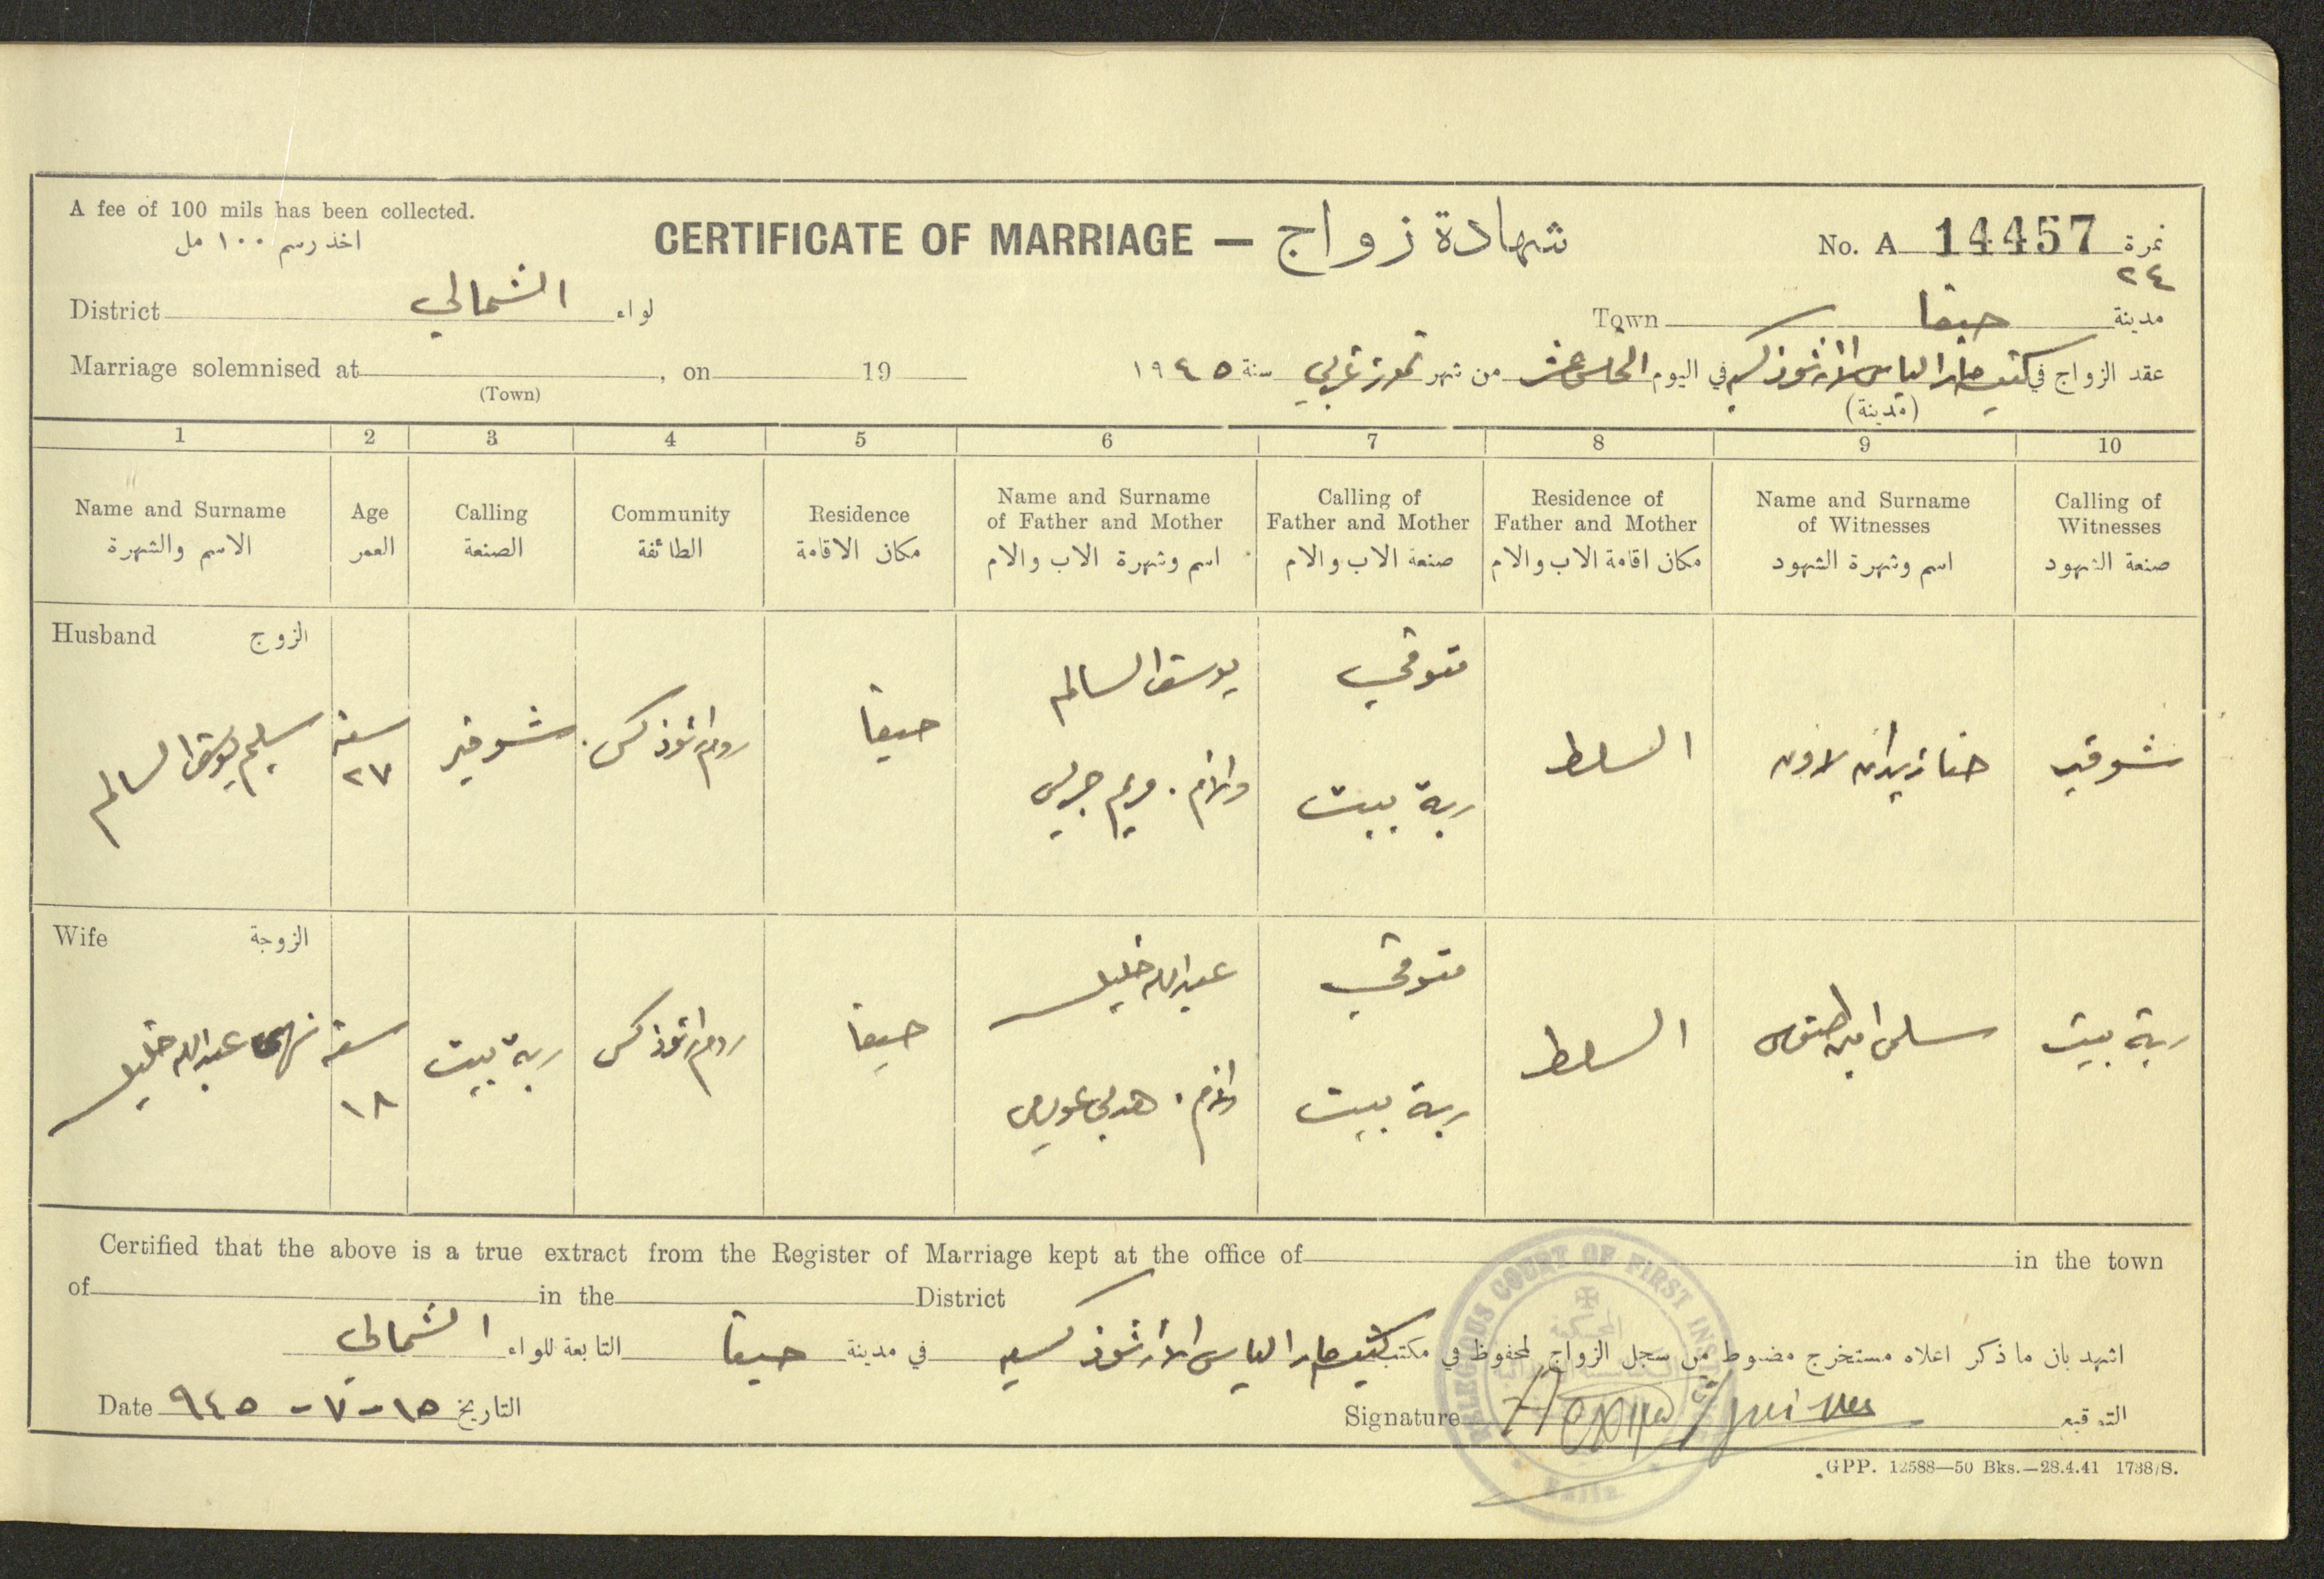 A fee of 100 mils has been collected.
اخذ رسم ١٠٠ مل
CERTIFICATE OF MARRIAGE — شهادة زواج
No. A 14457 نمرة
٢٤
District الشمالي لواء
Town حيفا مدينة
Marriage solemnised at , on 19
(Town)
عقد الزواج في كنيسة مار الياس الارثوذكسية في اليوم الخامس عشر من شهر تموز غربي سنة ١٩٤٥
(مدينة)
1 2 3 4 5 6 7 8 9 10
Name and Surname الاسم والشهرة
Age العمر
Calling الصنعة
Community الطائفة
Residence مكان الاقامة
Name and Surname of Father and Mother اسم وشهرة الاب والام
Calling of Father and Mother صنعة الاب والام
Residence of Father and Mother مكان اقامة الاب والام
Name and Surname of Witnesses اسم وشهرة الشهود
Calling of Witnesses صنعة الشهود
Husband الزوج
سليم يوسف السالم
سنة ٢٧
شوفير
روم ارثوذكس
حيفا
يوسف السالم
والام. مريم جريس
متوفي
ربة بيت
السلط
حنا زيدان
شوفير
Wife الزوجة
عبدالله خليل
سنة ١٨
ربة بيت
روم ارثوذكس
حيفا
عبدالله خليل
والام.
متوفي
ربة بيت
السلط
سلمى
ربة بيت
Certified that the above is a true extract from the Register of Marriage kept at the office of in the town
of in the District
اشهد بان ما ذكر اعلاه مستخرج مضبوط من سجل الزواج المحفوظ في مكتب كنيسة مار الياس الارثوذكسية في مدينة حيفا التابعة للواء الشمالي
Date ١٥-٧-٩٤٥ التاريخ
Signature التوقيع
RELIGIOUS COURT OF FIRST
Haifa
GPP. 12588—50 Bks.—28.4.41 1738/S.